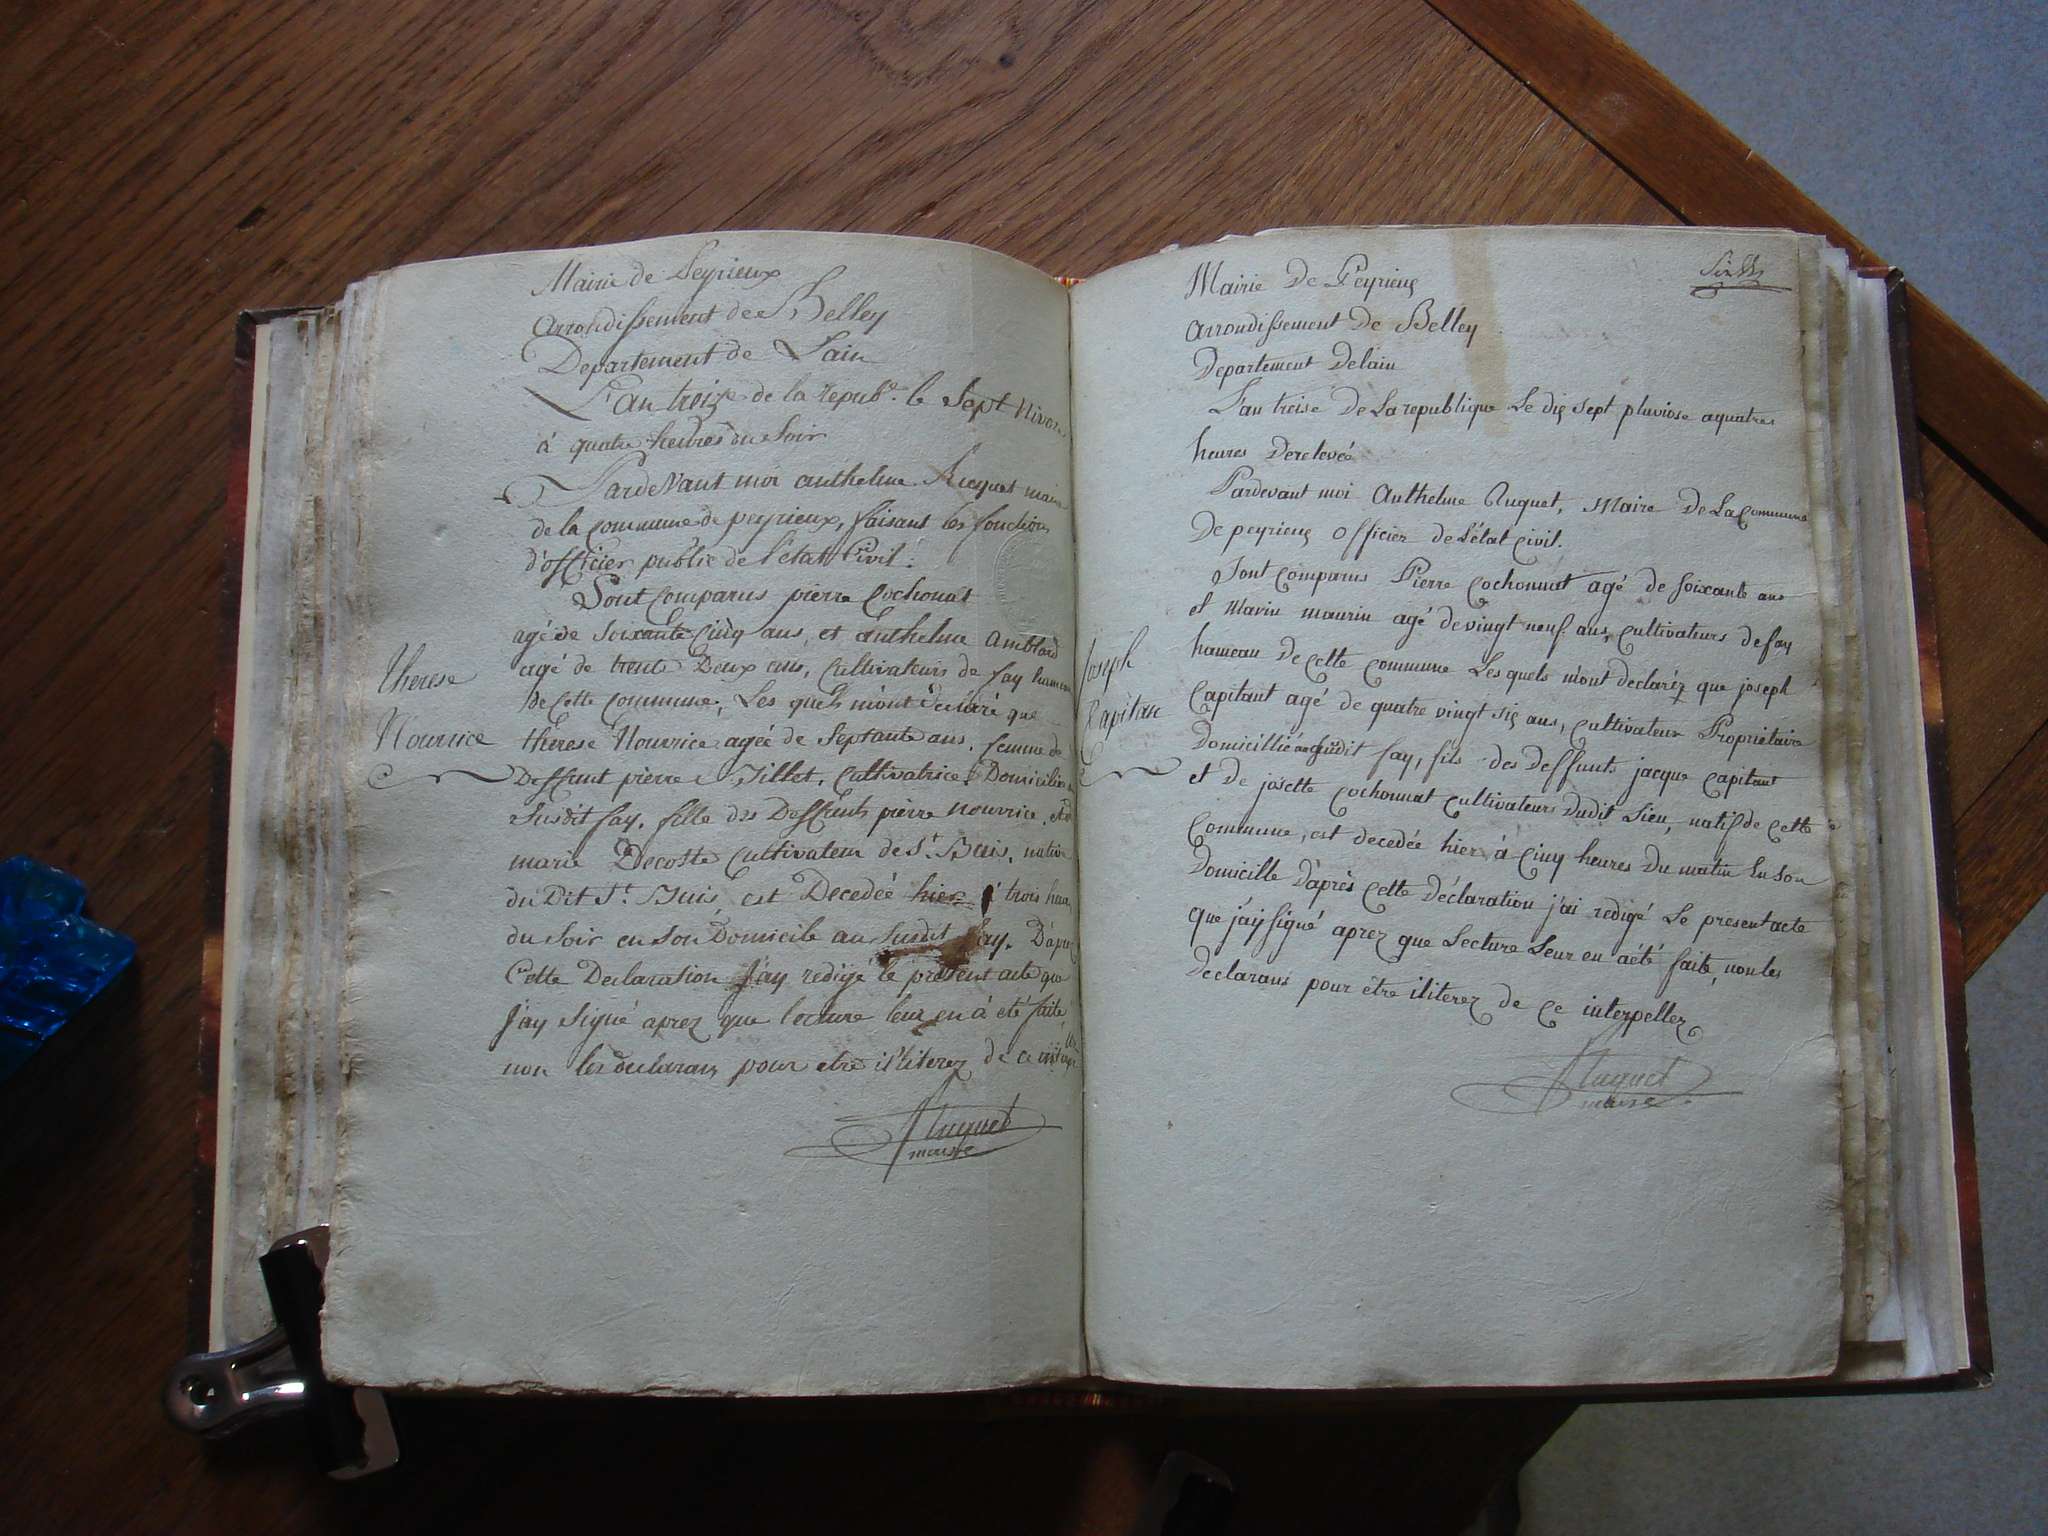 Mairie de Peyrieux
arrondissement de Belley
Departement de Lain
L'an treize de la repub.e le Sept Nivose
à quatre heures du Soir
Pardevant moi anthelme Ruquet maire
de la commune de peyrieux, faisant les fonctions
d'officier public de l'état Civil.
Sont Comparus pierre Cochonat
agé de Soixante Cinq ans, et anthelme Amblard
agé de trente Deux ans, Cultivateurs de fay hameau
de Cette Commune, Les quels m'ont déclaré que
Therese
Nourrice
therese Nourrice agée de Septante ans, femme de
Deffunt pierre Tillet, Cultivatrice Domiciliée
Susdit fay, fille des Deffunts pierre nourrice, et
marie Decoste Cultivateur de St. Buis, native
du Dit St. Buis, est Decedée hier à trois heures
du Soir en Son Domicile au Susdit fay. D'après
Cette Declaration J'ay redigé le present acte que
J'ay Signé aprez que lecture leur en à été faite
non les declarans pour etre illiterez de ce
Ruquet
maire
Mairie De Peyrieu
arrondissement De Belley
Departement Delain
L'an treise De La republique Le dix sept pluviose aquatre
heures Derelevée
Pardevant moi Anthelme Ruquet, Maire De La Commune
De peyrieu Officier de L'état Civil.
Sont Comparus Pierre Cochonnat agé de Soixante ans
et Marin maurin agé de vingt neuf ans, Cultivateurs de fay
hameau De Cette Commune Les quels m'ont declaréz que joseph
Joseph
Capitan
Capitant agé de quatre vingt six ans, Cultivateur Propriétaire
Domicillié audit fay, fils des deffunts jacque Capitant
et de josette Cochonnat Cultivateurs Dudit Lieu, natif de Cette
Commune, est decedée hier à Cinq heures Du matin En Son
Domicille D'après Cette Déclaration j'ai redigé Le present acte
que j'ay Signé aprez que Lecture Leur en a été faite, non les
declarans pour être illiterez de Ce interpellez
Ruquet
maire